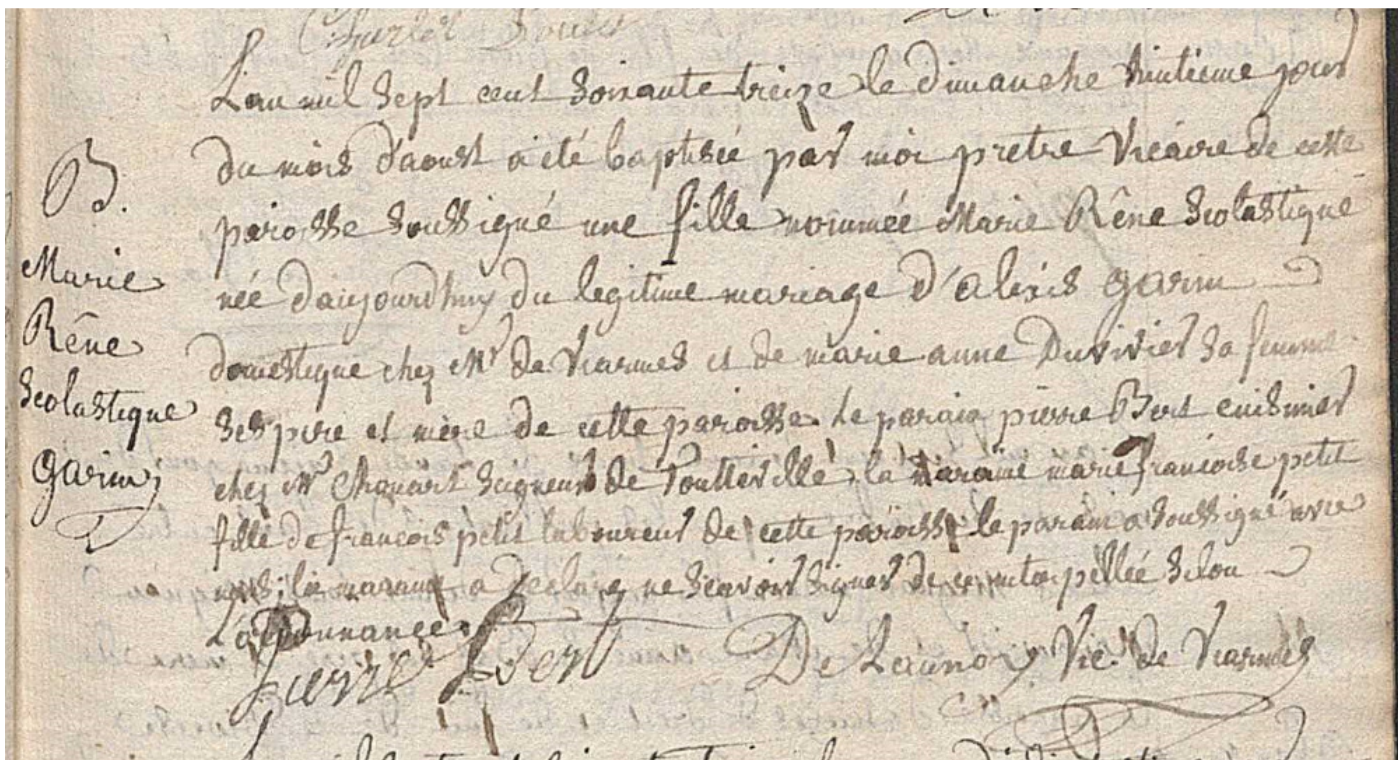 Charles
L'an mil Sept cent Soixante treize le dimanche
jour
du mois d'aoust a été baptisée par moi pretre Vicaire de cette
paroisse Soussigné une fille nommée Marie Rêne Scolastique
née d'aujourdhuy du legitime mariage d'Alexis garin
domestique chez Mr de Viarmes et de marie anne Duvivier Sa femme
Ses pere et mere de cette paroisse. Le parain pierre Bert cuisinier
chez Mr Seigneur de la maraine marie francoise petit
fille de francois petit laboureur de cette paroisse le parain a Soussigné avec
nous, la maraine a declaré ne Scavoir Signer de ce Selon
L'ordonnance.
Pierre Bert De Launoy Vic. de Viarmes
B.
Marie
Rêne
Scolastique
garin